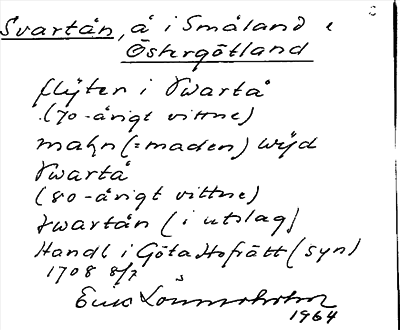 Svartån, å i Småland o
Östergötland
flÿter i Swartå
(70-årigt vittne)
mahn (=maden) wijd
Swartå
(80-årigt vittne)
swartån (i utslag)
Handl i Göta Hofrätt (syn)
1708 8/7
Erik
1964